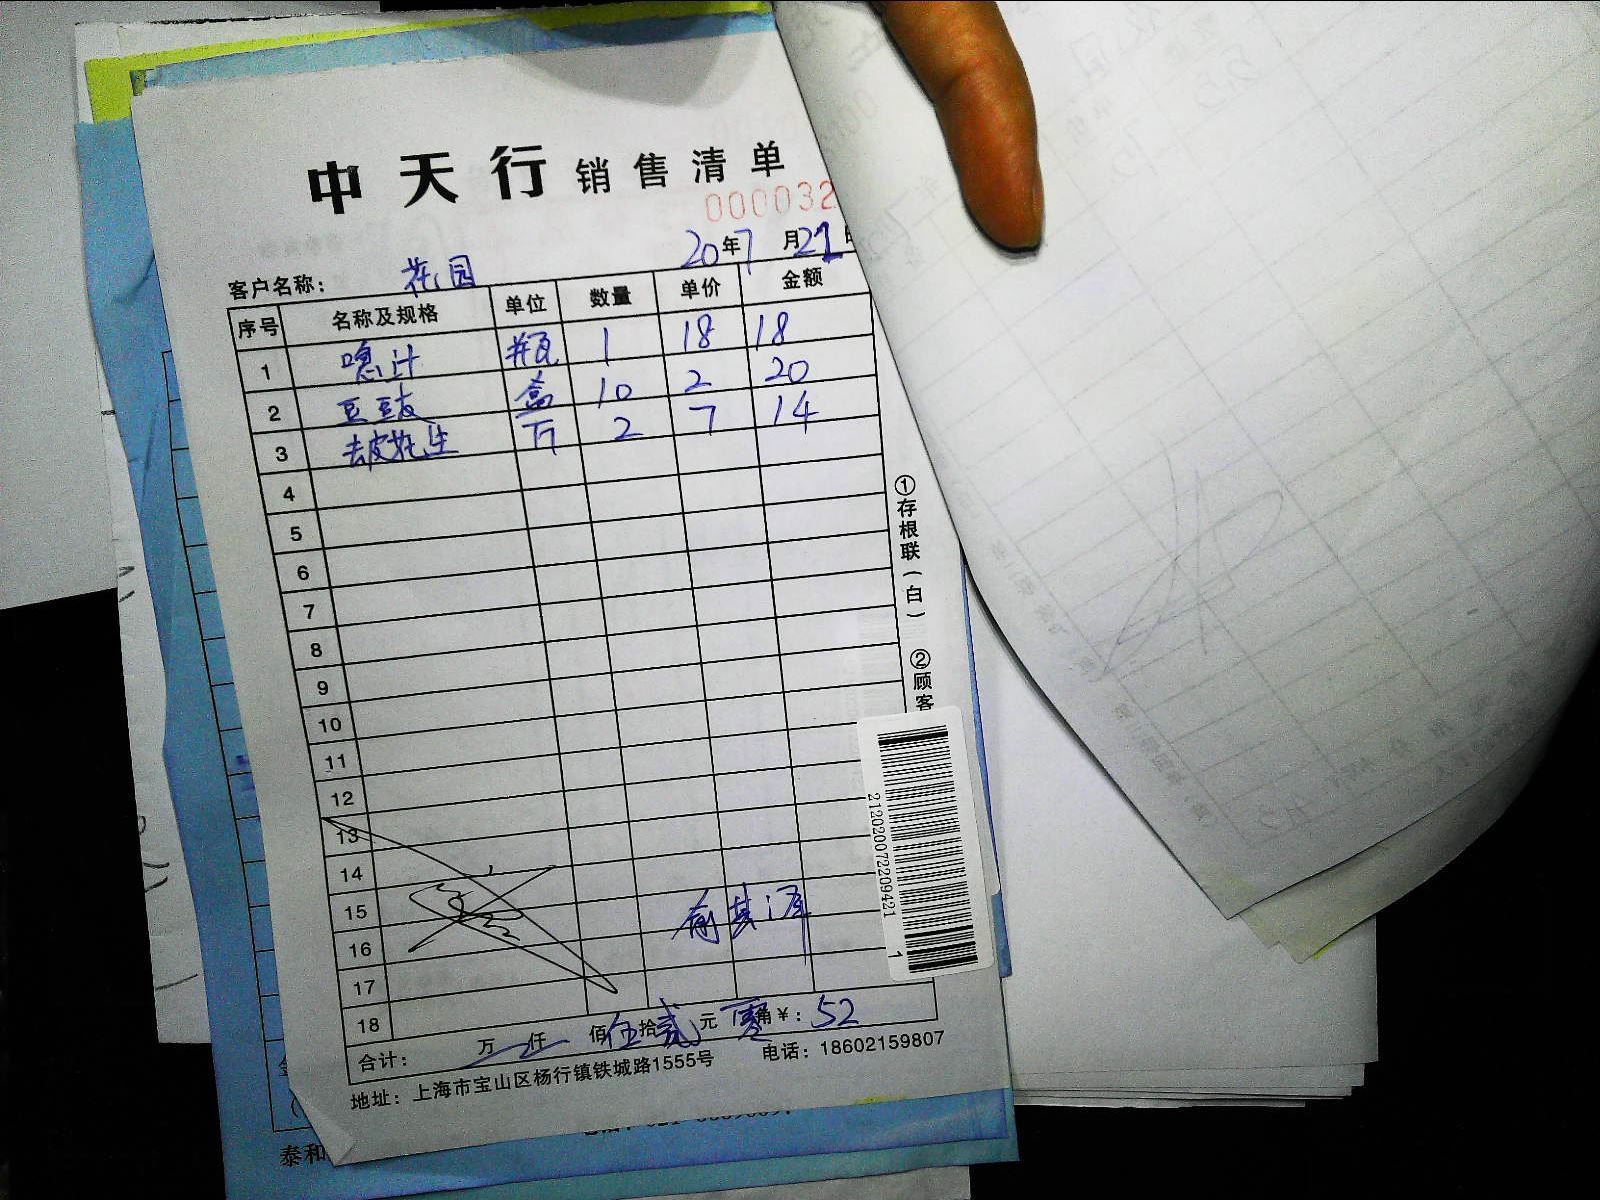 中天行 销售清单
000032
20年7月21日
客户名称： 花园
序号 名称及规格 单位 数量 单价 金额
1 喼汁 瓶 1 18 18
2 豆豆豉 盒 10 2 20
3 去皮花生 斤 2 7 14
4
5
6
7
8
9
10
11
12
13
14
15
16
17
18
合计： 万 仟 佰 伍拾贰元 零角￥: 52
地址：上海市宝山区杨行镇铁城路1555号 电话：18602159807
①存根联（白） ②顾客
2120200722094211
泰和